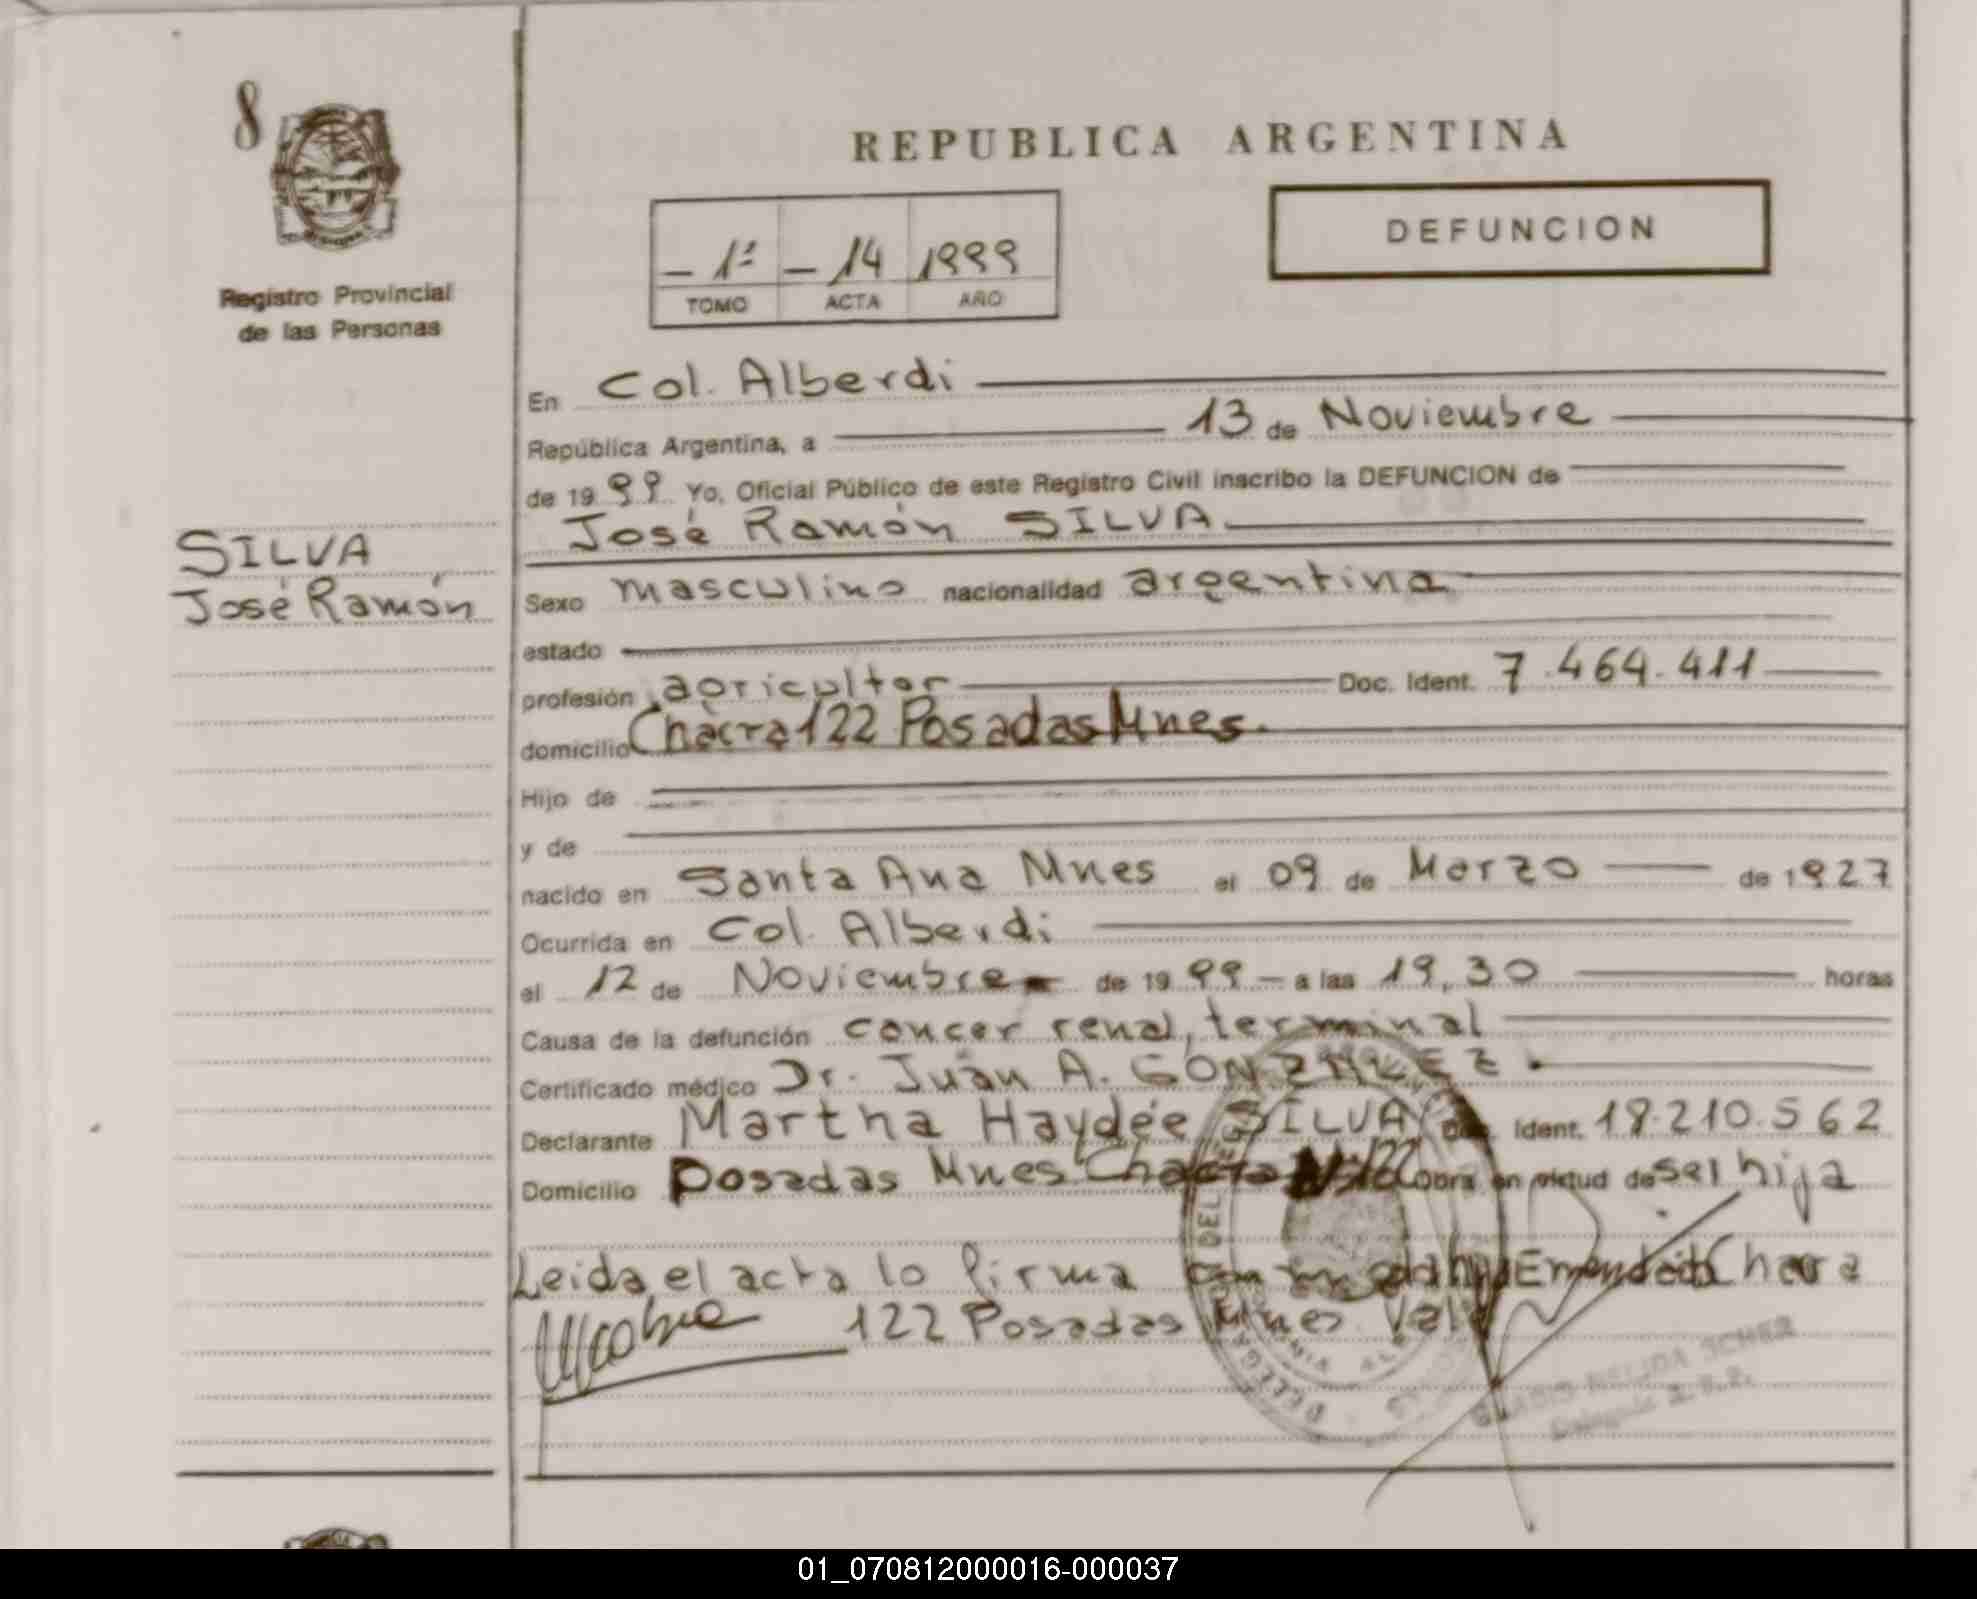 8
REPUBLICA ARGENTINA
DEFUNCION
- 1ª - 14 1999
TOMO ACTA AÑO
Registro Provincial
de las Personas
SILVA
José Ramón
En Col. Alberdi
República Argentina, a 13 de Noviembre
de 1999 Yo, Oficial Público de este Registro Civil inscribo la DEFUNCION de
José Ramón SILVA
Sexo masculino nacionalidad argentina
estado
profesión agricultor Doc. Ident. 7.464.411
domicilio Chacra 122 Posadas Mnes.
Hijo de
y de
nacido en Santa Ana Mnes el 09 de Marzo de 1927
Ocurrida en Col. Alberdi
el 12 de Noviembre de 1999 - a las 19,30 horas
Causa de la defunción cancer renal, terminal
Certificado médico Dr. Juan A. GONZALEZ
Declarante Martha Haydée SILVA Doc. Ident. 18.210.562
Domicilio Posadas Mnes Chacra 122 Obra en virtud de ser hija
Leida el acta lo firma Enmendado Chacra
122 Posadas Mnes Vale
01_070812000016-000037